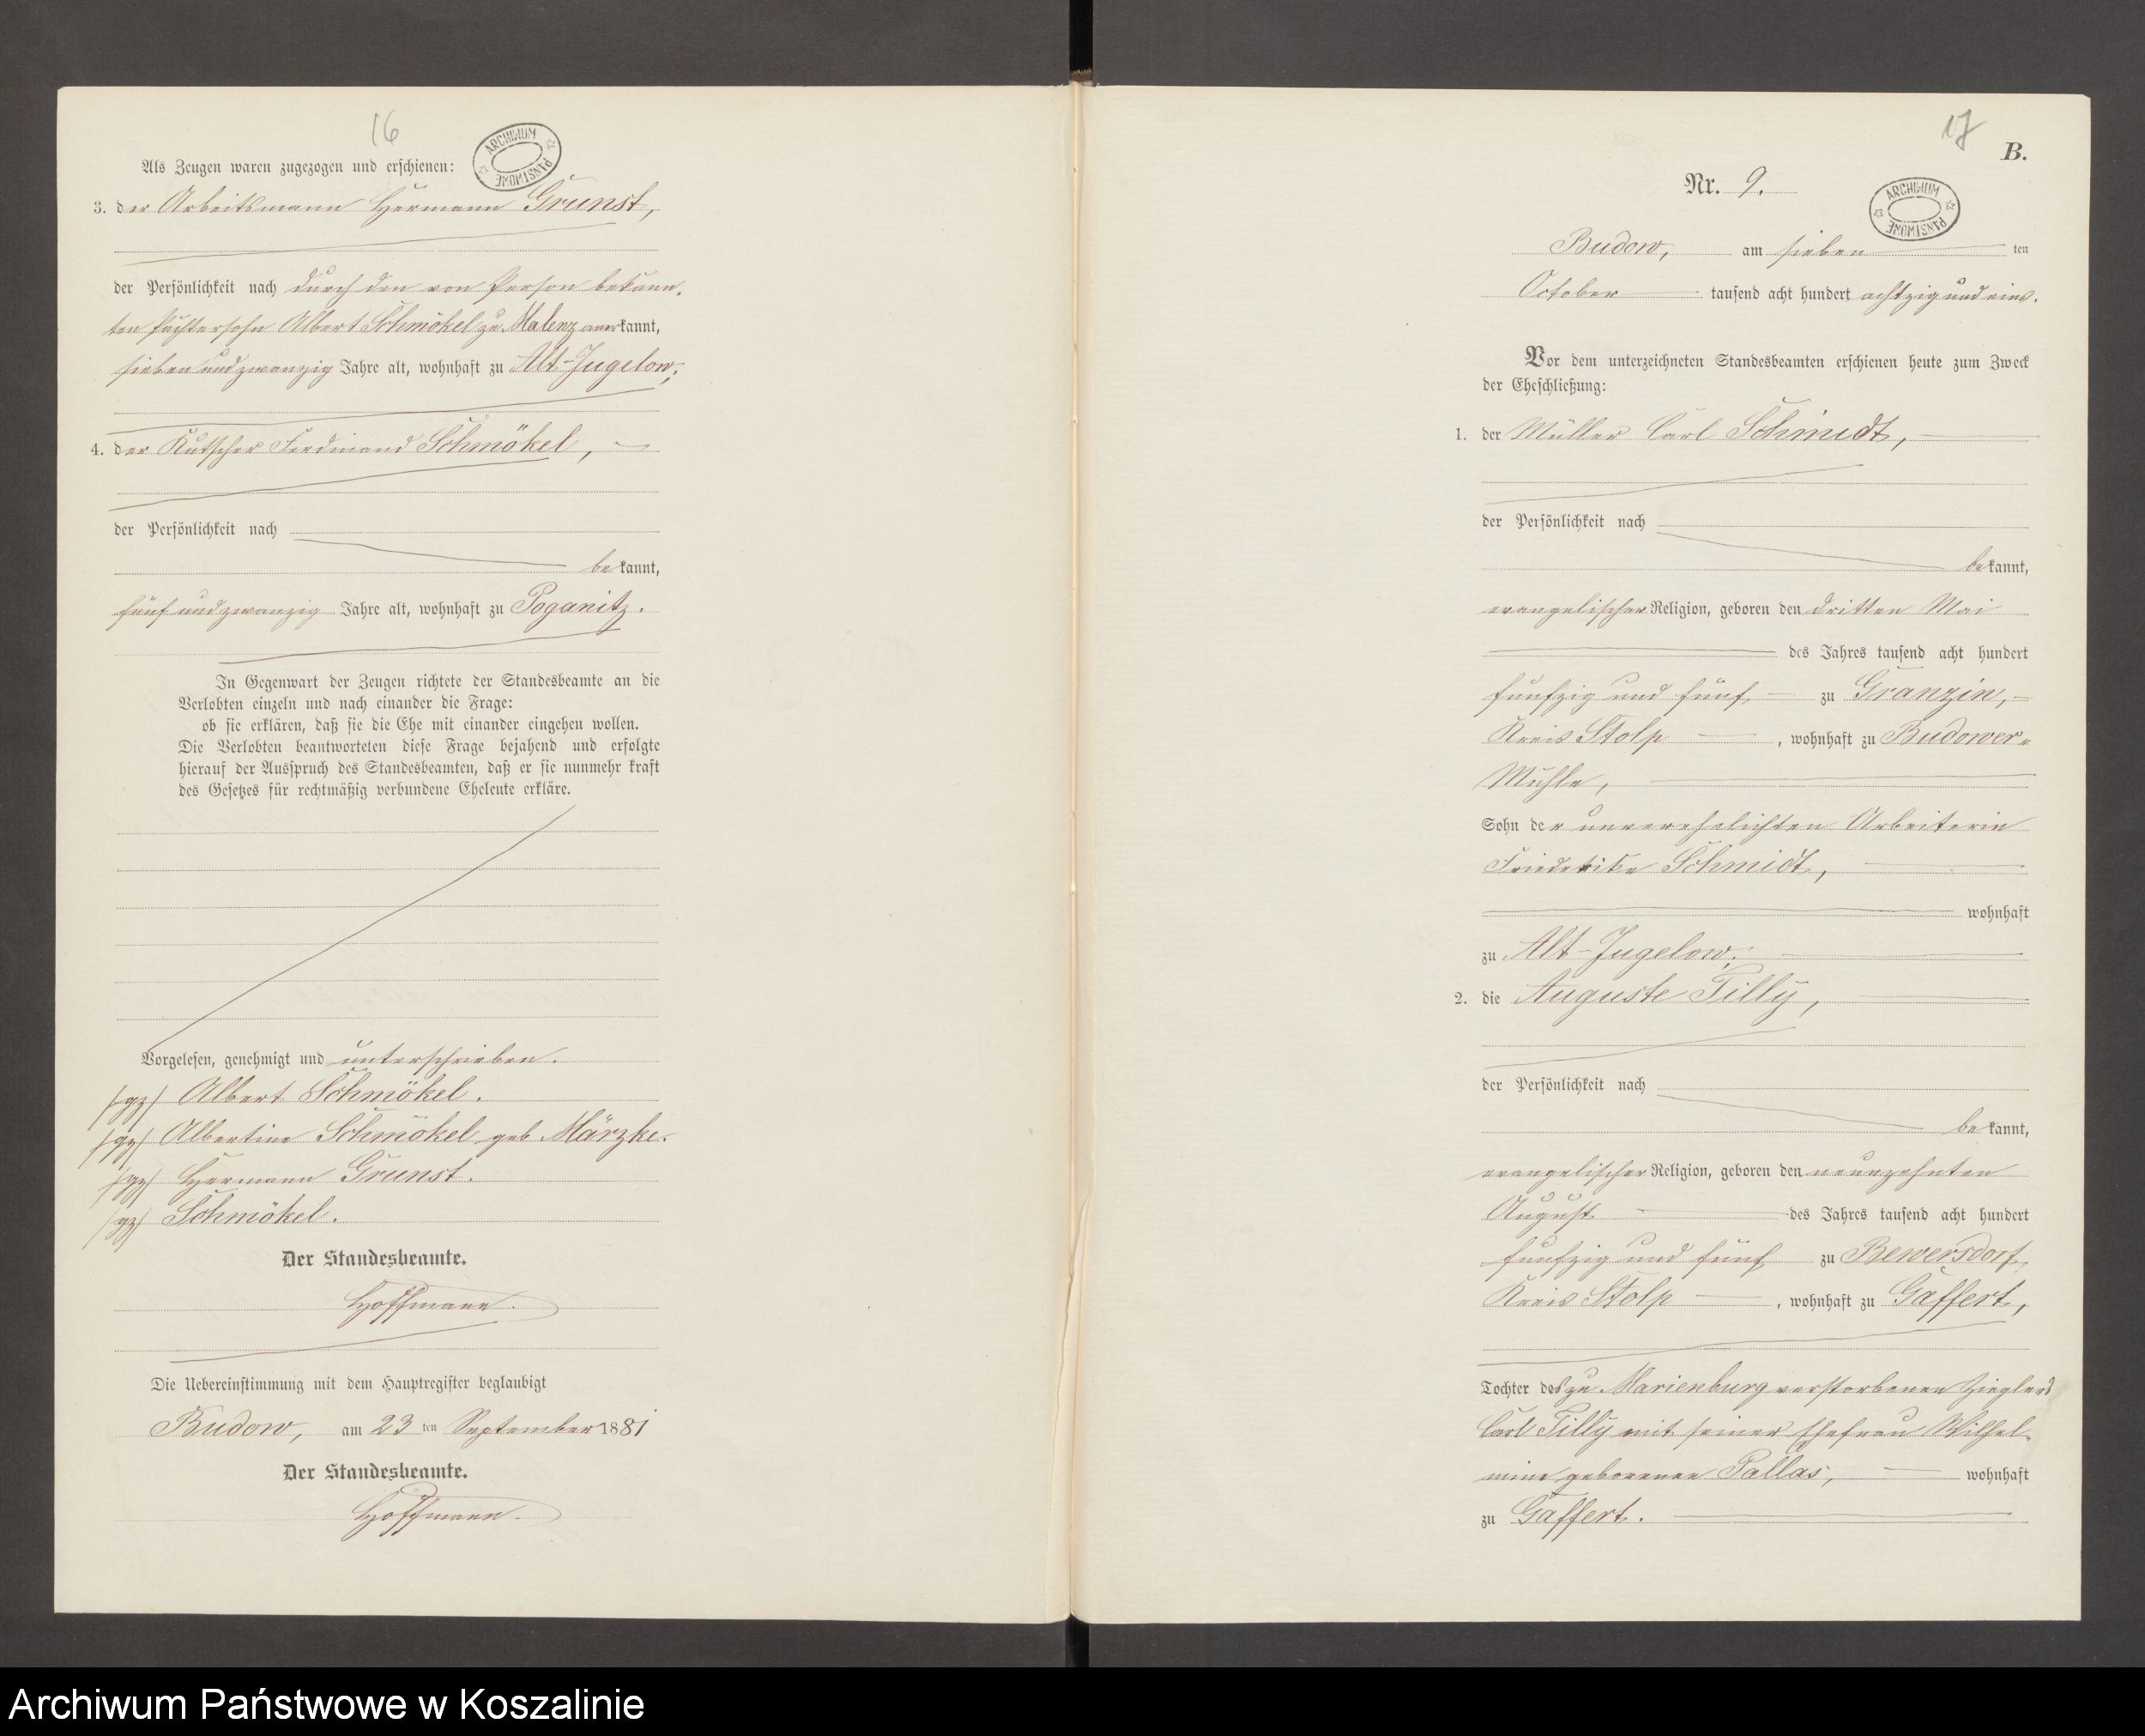 16
ARCHIWUM PAŃSTWOWE
Als Zeugen waren zugezogen und erschienen:
3. der Arbeitsmann Hermann Grunst,
der Persönlichkeit nach durch den von Person bekann-
ten Pächtersohn Albert Schmökel zu Malenz anerkannt,
sieben und zwanzig Jahre alt, wohnhaft zu Alt-Jugelow;
4. der Kutscher Ferdinand Schmökel,
der Persönlichkeit nach
bekannt,
fünf und zwanzig Jahre alt, wohnhaft zu Poganitz.
In Gegenwart der Zeugen richtete der Standesbeamte an die
Verlobten einzeln und nach einander die Frage:
ob sie erklären, daß sie die Ehe mit einander eingehen wollen.
Die Verlobten beantworteten diese Frage bejahend und erfolgte
hierauf der Ausspruch des Standesbeamten, daß er sie nunmehr kraft
des Gesetzes für rechtmäßig verbundene Eheleute erkläre.
Vorgelesen, genehmigt und unterschrieben.
/gz/ Albert Schmökel.
/gz/ Albertine Schmökel geb Märzke.
/gz/ Hermann Grunst.
/gz/ Schmökel.
Der Standesbeamte.
Hoffmann.
Die Uebereinstimmung mit dem Hauptregister beglaubigt
Budow, am 23 ten September 1881
Der Standesbeamte.
Hoffmann.
17
B.
Nr. 9.
ARCHIWUM PAŃSTWOWE
Budow, am sieben ten
October tausend acht hundert achtzig und eins.
Vor dem unterzeichneten Standesbeamten erschienen heute zum Zweck
der Eheschließung:
1. der Müller Carl Schmidt,
der Persönlichkeit nach
bekannt,
evangelischer Religion, geboren den dritten Mai
des Jahres tausend acht hundert
funfzig und fünf zu Granzin,
Kreis Stolp, wohnhaft zu Budower-
Mühle,
Sohn der unverehelichten Arbeiterin
Friederike Schmidt,
wohnhaft
zu Alt-Jugelow;
2. die Auguste Tilly,
der Persönlichkeit nach
bekannt,
evangelischer Religion, geboren den neunzehnten
August des Jahres tausend acht hundert
funfzig und fünf zu Bewersdorf,
Kreis Stolp, wohnhaft zu Gaffert,
Tochter des zu Marienburg verstorbenen Zieglers
Carl Tilly mit seiner Ehefrau Wilhel-
mine geborenen Pallas, wohnhaft
zu Gaffert.
Archiwum Państwowe w Koszalinie